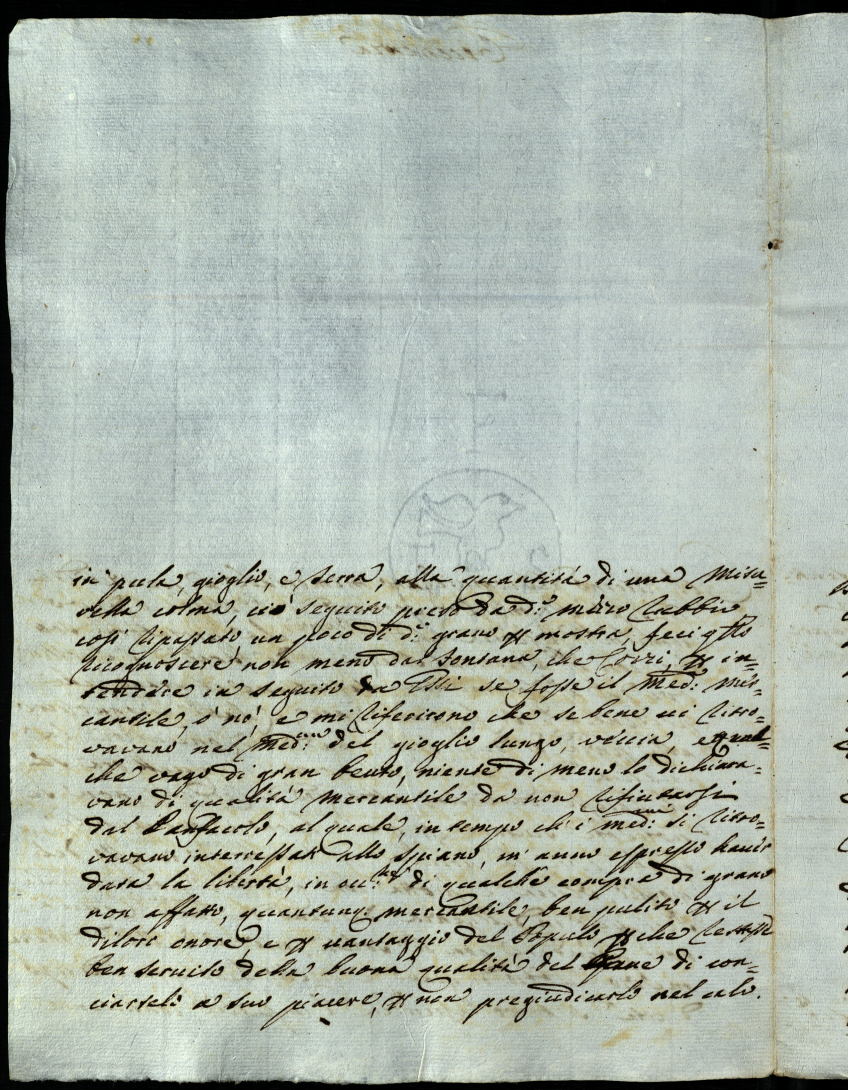 in pula, gioglio, e terra, alla quantità di una misu-
rella colma, ciò seguito preso da d.º mezzo rubbio
così ripassato un poco di d.º grano p mostra, feci q.sto
ricognoscere non meno dal Fontana, che Cozzi, p in-
tendere in seguito da Essi se fosse il med.º mer-
cantile, ò nò, e mi riferirono che se bene vi ritro-
vavano nel med.mo del gioglio lungo, veccia, e qual-
che vago di gran bento, niente di meno lo dichiara-
vano di qualità mercantile da non rifiutarsi
dal , al quale, in tempo ch'i med.mi si ritro-
vavano interressati allo spiano, m'anno espresso haver
data la libertà, in occ.ne di qualche compra di grano
non affatto, quantunq. mercantile, ben pulito p il
di loro onore, e p vantaggio del Popolo, p che restasse
ben servito della buona qualità del Pane di con-
ciarselo a suo piacere, p non pregiudicarlo nel calo.